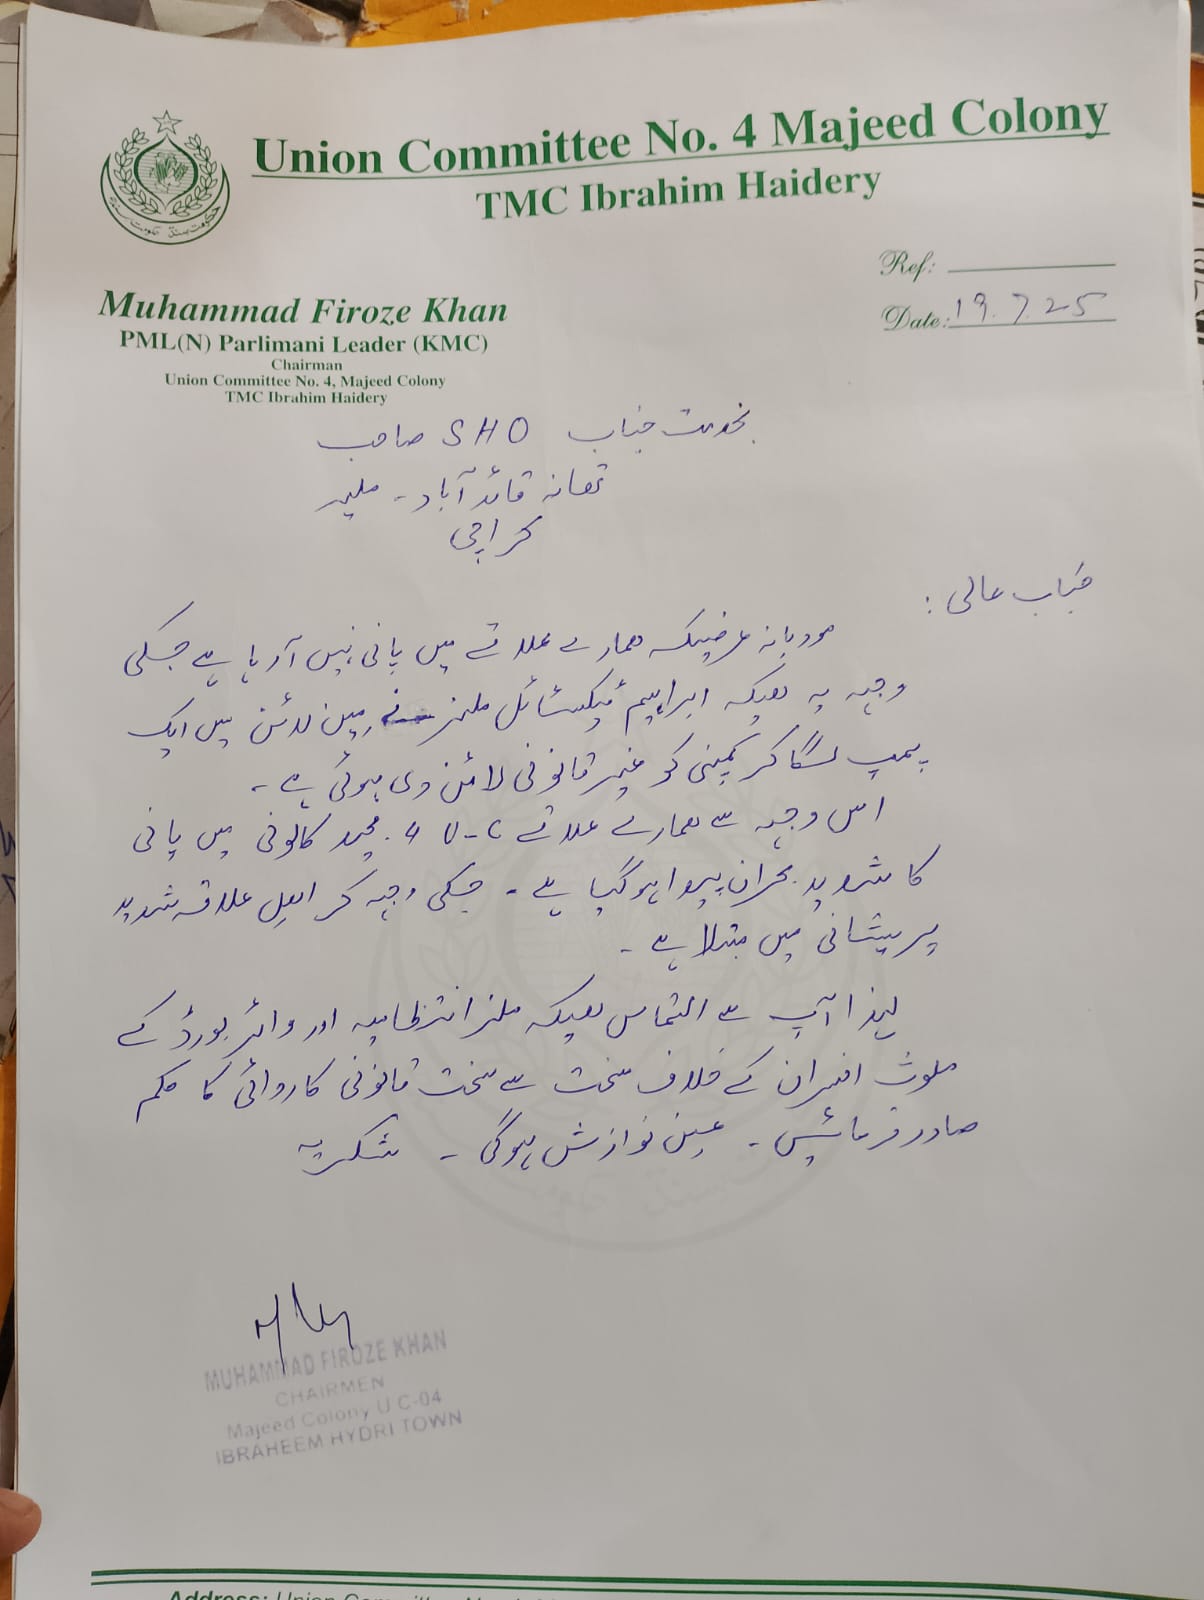 Union Committee No. 4 Majeed Colony
TMC Ibrahim Haidery
Ref:
Date: 19.7.25
Muhammad Firoze Khan
PML(N) Parlimani Leader (KMC)
Chairman
Union Committee No. 4, Majeed Colony
TMC Ibrahim Haidery
بخدمت جناب SHO صاحب
تھانہ قائد آباد - ملیر
کراچی
جناب عالی :
مودبانہ عرضیکہ ھمارے علاقے میں پانی نہیں آرہا ہے جسکی
وجہ یہ ھیکہ ابراہیم ٹیکسٹائل ملز نے مین لائن میں ایک
پمپ لگا کر کمپنی کو غیر قانونی لائن دی ہوئی ہے -
اس وجہ سے ھمارے علاقے U-C 4 مجید کالونی میں پانی
کا شدید بحران پیدا ہوگیا ہے - جسکی وجہ کر اھل علاقہ شدید
پریشانی میں مبتلا ہے -
لہذا آپ سے التماس ھیکہ ملز انتظامیہ اور واٹر بورڈ کے
ملوث افسران کے خلاف سخت سے سخت قانونی کاروائی کا حکم
صادر فرمائیں - عین نوازش ہوگی - شکریہ
MUHAMMAD FIROZE KHAN
CHAIRMEN
Majeed Colony U C-04
IBRAHEEM HYDRI TOWN